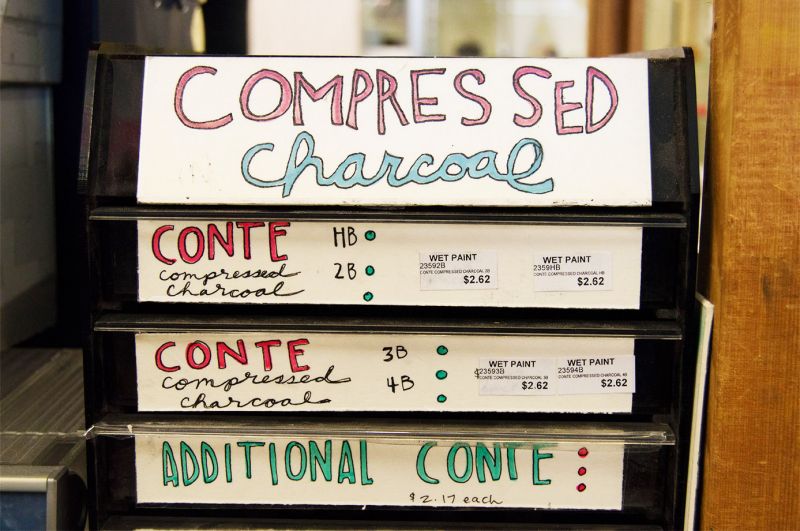 COMPRESSED
charcoal
CONTE
compressed
charcoal
HB
2B
WET PAINT
23592B
CONTE COMPRESSED CHARCOAL 2B
$2.62
WET PAINT
2359HB
CONTE COMPRESSED CHARCOAL HB
$2.62
CONTE
compressed
charcoal
3B
4B
WET PAINT
23593B
CONTE COMPRESSED CHARCOAL 3B
$2.62
WET PAINT
23594B
CONTE COMPRESSED CHARCOAL 4B
$2.62
ADDITIONAL CONTE
$2.17 each